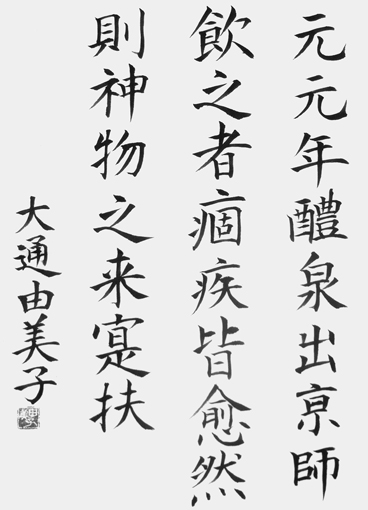 元元年醴泉出亰師
飲之者痼疾皆愈然
則神物之来寔扶
大通由美子